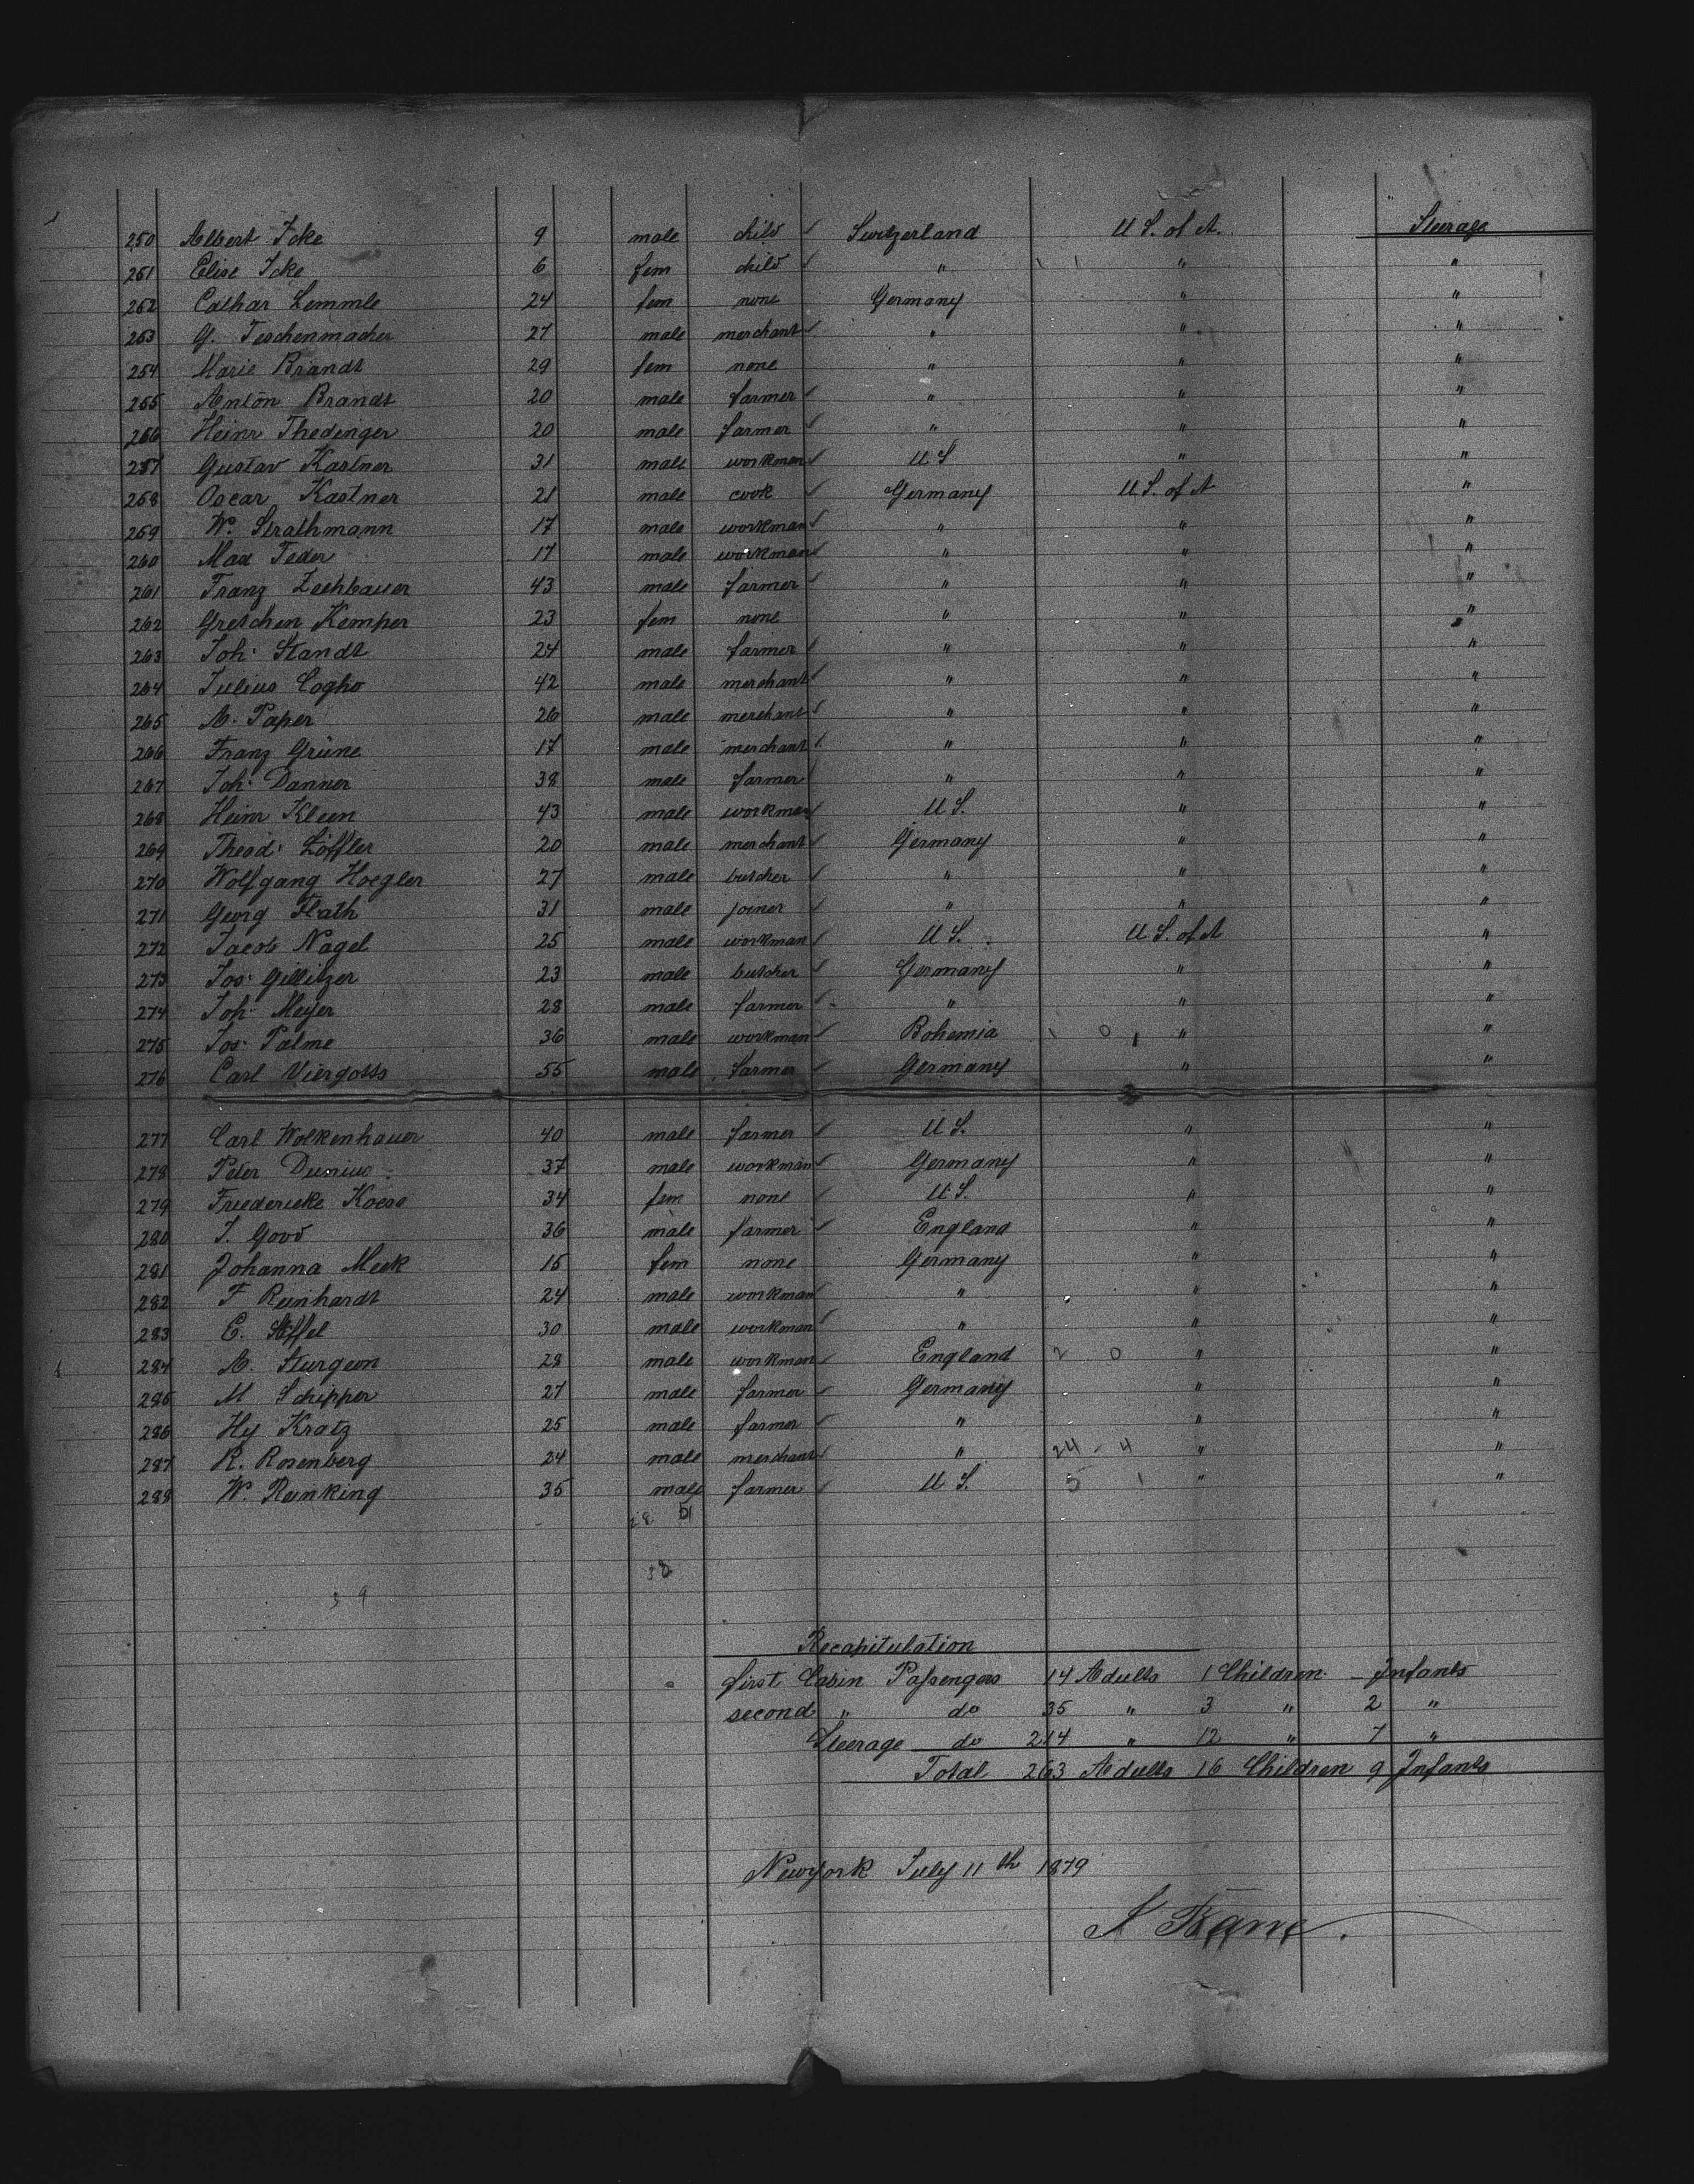 250 Albert Icke 9 male child ✓ Switzerland U S. of A. Steerage
251 Elise Icke 6 fem child ✓ " 1 1 " "
252 Cathar Lemmle 24 fem none Germany " "
253 G. Teschenmacher 27 male merchant ✓ " " "
254 Marie Brandt 29 fem none " " "
255 Anton Brandt 20 male farmer ✓ " " "
256 Heinr Thedinger 20 male farmer ✓ " " "
257 Gustav Kastner 31 male workman ✓ U S " "
258 Oscar Kastner 21 male cook ✓ Germany U S. of A "
259 W. Strathmann 17 male workman ✓ " " "
260 Max Feder 17 male workman ✓ " " "
261 Franz Zechbauer 43 male farmer ✓ " " "
262 Gretchen Kemper 23 fem none " " "
263 Joh. Standt 24 male farmer ✓ " " "
264 Julius Coglio 42 male merchant ✓ " " "
265 A. Paper 26 male merchant ✓ " " "
266 Franz Grüne 17 male merchant ✓ " " "
267 Joh. Danner 38 male farmer ✓ " " "
268 Heinr Kleen 43 male workman ✓ U S. " "
269 Theod. Löffler 20 male merchant ✓ Germany " "
270 Wolfgang Hoegler 27 male butcher ✓ " " "
271 Georg Flath 31 male joiner ✓ " " "
272 Jacob Nagel 25 male workman ✓ U S. U S. of A "
273 Jos. Gillitzer 23 male butcher ✓ Germany " "
274 Joh. Meyer 28 male farmer ✓ " " "
275 Jos. Palme 36 male workman ✓ Bohemia 1 0 1 " "
276 Carl Viergotts 55 male farmer ✓ Germany " "
277 Carl Wolkenhauer 40 male farmer ✓ U S. " "
278 Peter Dunius 37 male workman ✓ Germany " "
279 Friedericke Koese 34 fem none ✓ U. S. " "
280 J. Good 36 male farmer ✓ England " "
281 Johanna Meek 15 fem none Germany " "
282 F Reinhardt 24 male workman ✓ " " "
283 E. 30 male workman ✓ " " "
284 A. Sturgeon 28 male workman ✓ England 2 0 " "
285 M Schipper 27 male farmer ✓ Germany " "
286 Hy Kratz 25 male farmer ✓ " " "
287 R. Rosenberg 24 male merchant ✓ " 24 - 4 " "
288 W. Renking 35 male farmer ✓ U S. 5 1 " "
28 51
38
39
Recapitulation
first Cabin Passengers 14 Adults 1 Children - Infants
second " do 35 " 3 " 2 "
Steerage do 214 " 12 " 7 "
Total 263 Adults 16 Children 9 Infants
Newyork July 11th 1879